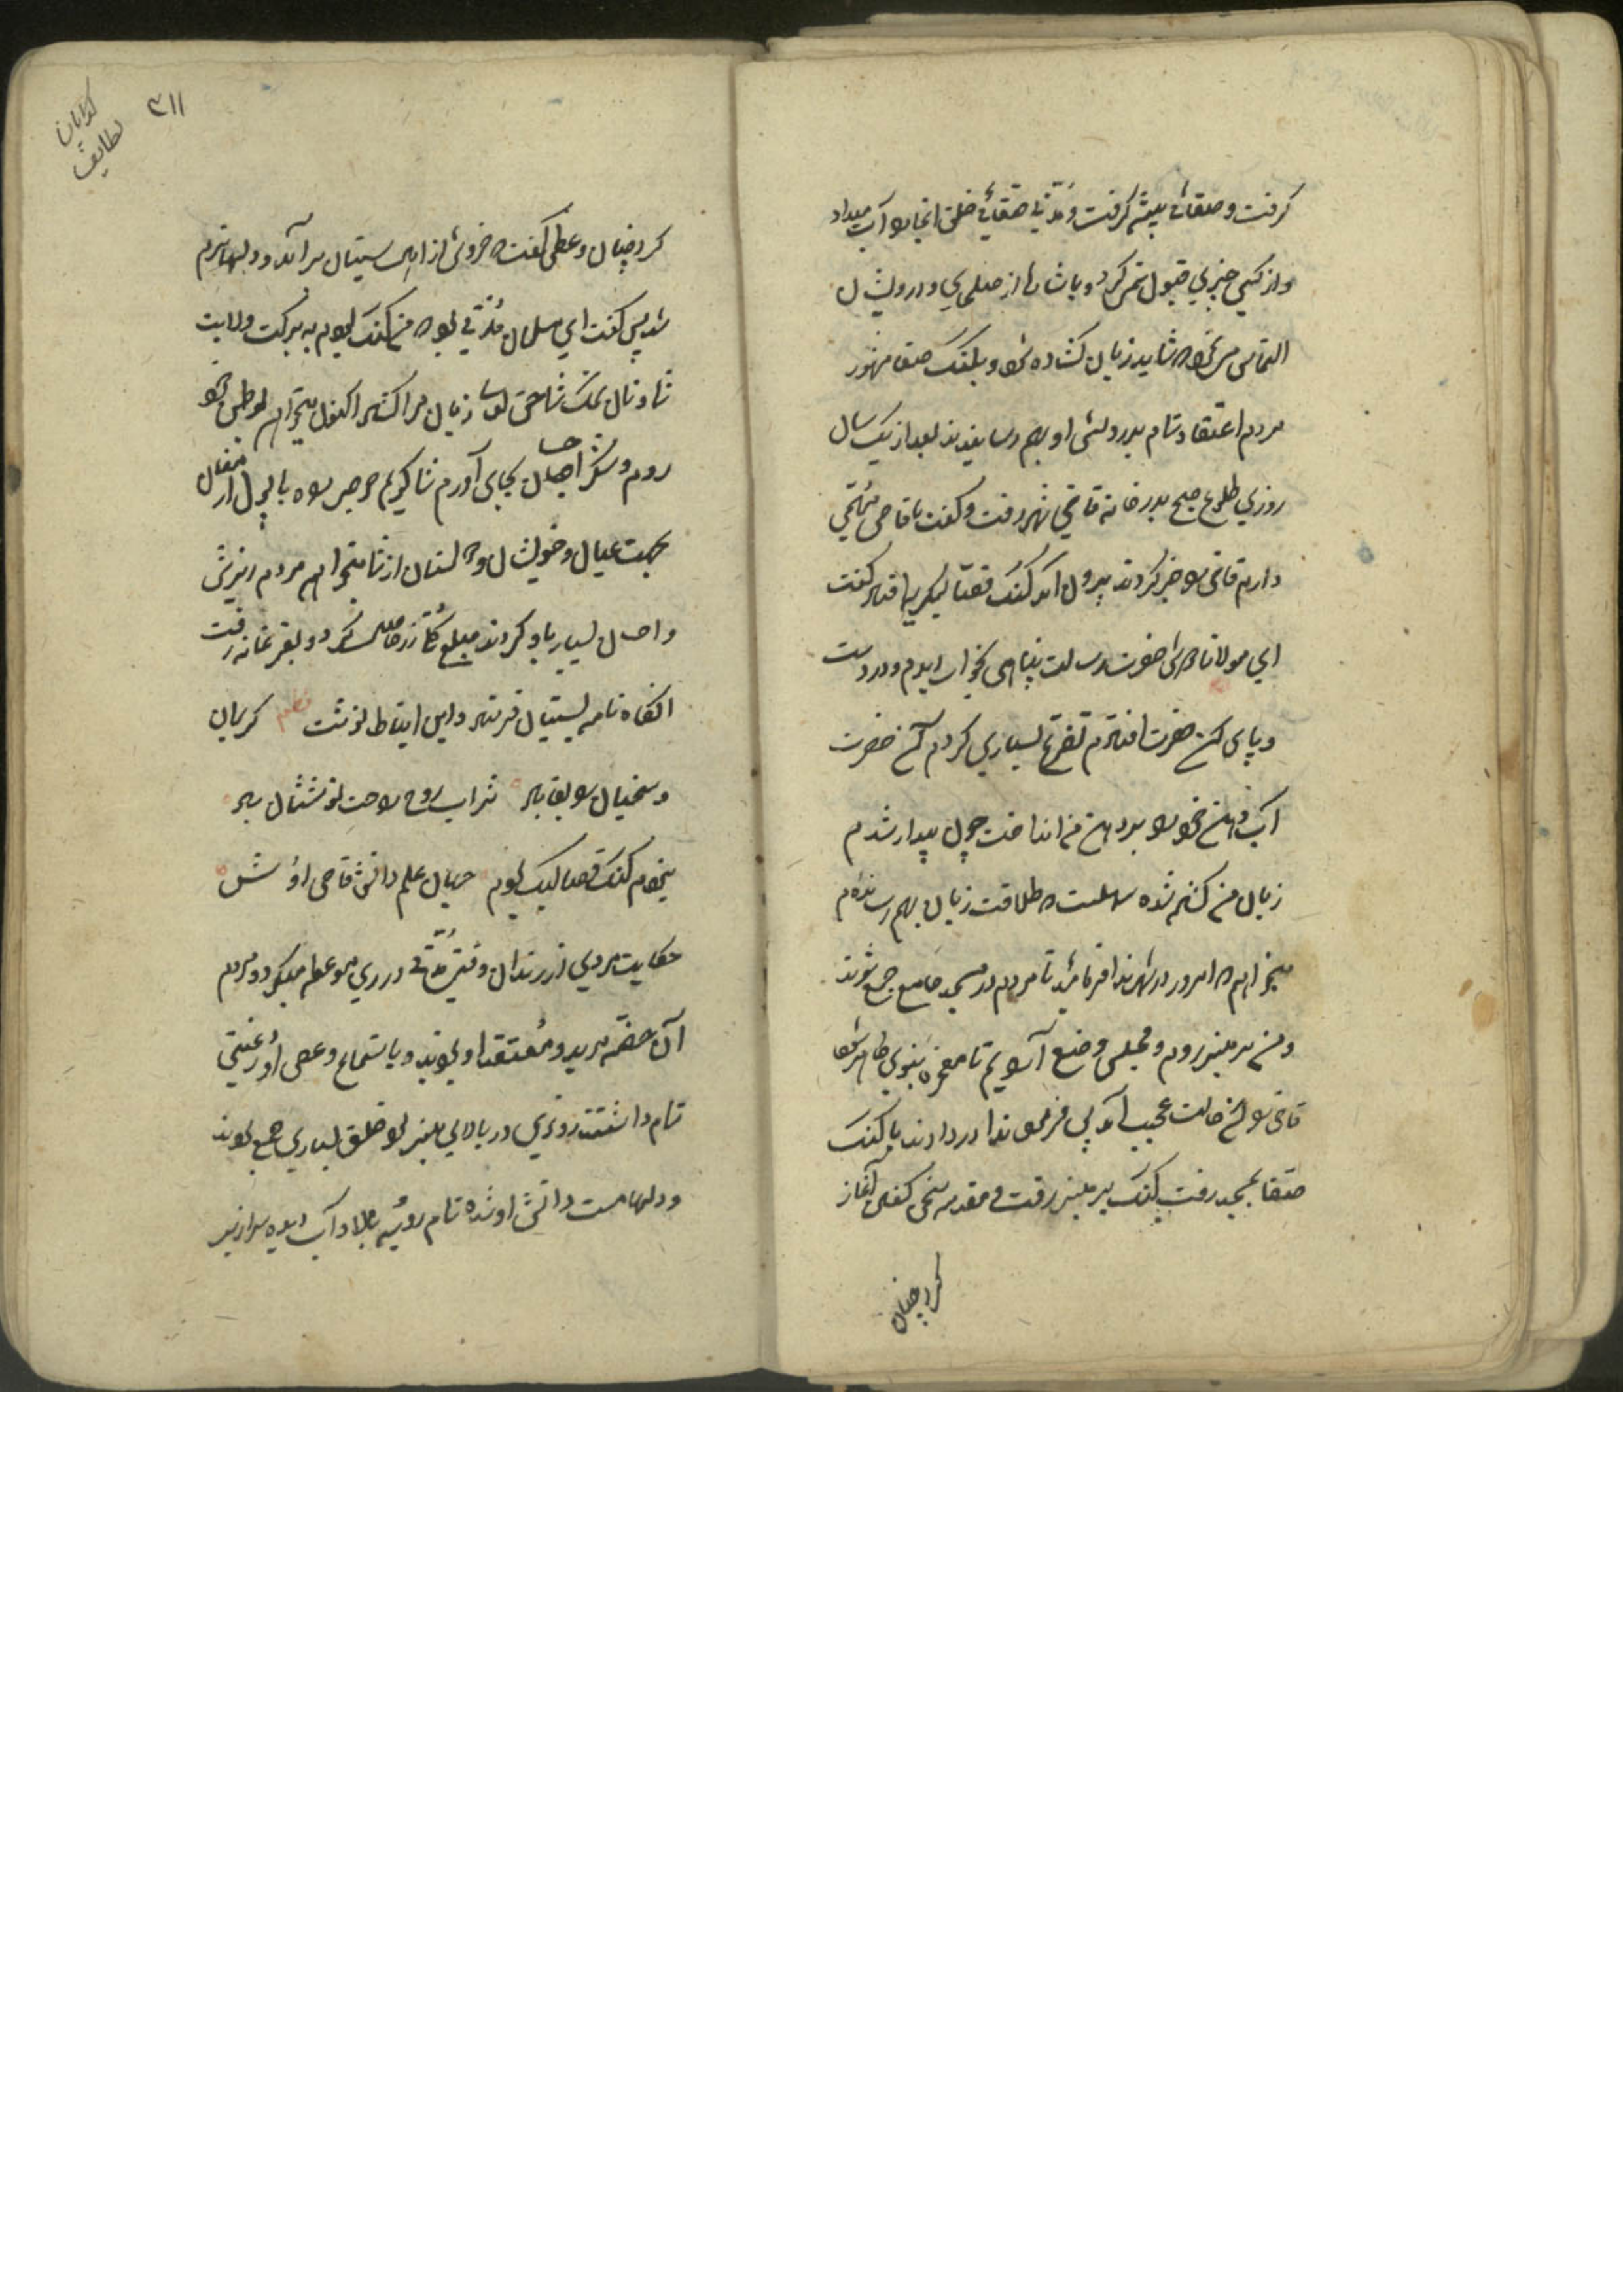 گرفت و صقائی پیشه گرفت و مدتی صقائی خلق انجا را آب میداد
و از کسی چیزی قبول نمیکرد و باشارت از صلحای و درویشان
التماس می نمود که شاید زبان کشاده شود و بگنگ صقا مشهور
مردم اعتقاد تمام بدرویشی او بهم رسانیدند بعد از یک سال
روزی طلوع صبح بدرخانه قاضی شهر رفت و گفت با قاضی مهمی
دارم قاضی را خبر کردند بیرون آمد گنگ فصا بگریه افتاد گفت
ای مولانا حضرت رسالت پناهی بخواب دیدم و در دست
و پای آن حضرت افتادم تضرع بسیاری کردم آن حضرت
آب دهن خود را بر دهن من انداخت چون بیدار شدم
زبان من گشاده شده که طلاقت زبان بهم رسانده ام
میخواهم که امروز در شهر ندا فرمائید تا مردم در مسجد جامع جمع شوند
و من بر منبر روم و مجلس وضع آرایم تا معجزه نبوی ظاهر شود
قاضی را آن حالت عجب آمد پس فرمود ندا در دادند با گنگ
صقا بمسجد رفت گنگ بر منبر رفت و مقدمه سخن گفتن آغاز
کرد چنان
۳۱۱
گدایان
لطایف
کرد چنان وعظی گفت که خروش از اهل سیستان برآمد و دلها نرم
شد پس گفت ای مسلمانان مدتی بود که من گنگ بودم به برکت ولایت
شما و نان نمک شما حق تعالی زبان مرا گشاد اکنون میخواهم بوطن خود
روم و شکر احسان بجای آورم شما گویم خرجی راه با پول ارمغان
بجهت عیال و خویشان و دوستان از شما میخواهم مردم ریزش
و احسان بسیار باو کردند مبلغ کلی زر حاصل کرد و بقمرخانه رفت
آنگاه نامه بسیستان فرستاد و این ابیات نوشت نظم کریمان
و سخیان را بقا باد شراب روح راحت نوششان باد
نبودم گنگ فصا لیک بودم میان علم دانش قاضی اوستاد
حکایت مردی از رندان وقتی مدتی در ری موعظه میکرد و مردم
آن خطه مرید و معتقد او بودند و باستماع وعظ او رغبتی
تمام داشتند روزی در بالای منبر بود خلق بسیاری جمع بودند
و دلها مست دانش او شده تمام روی بالا و آب دیده سرازیر